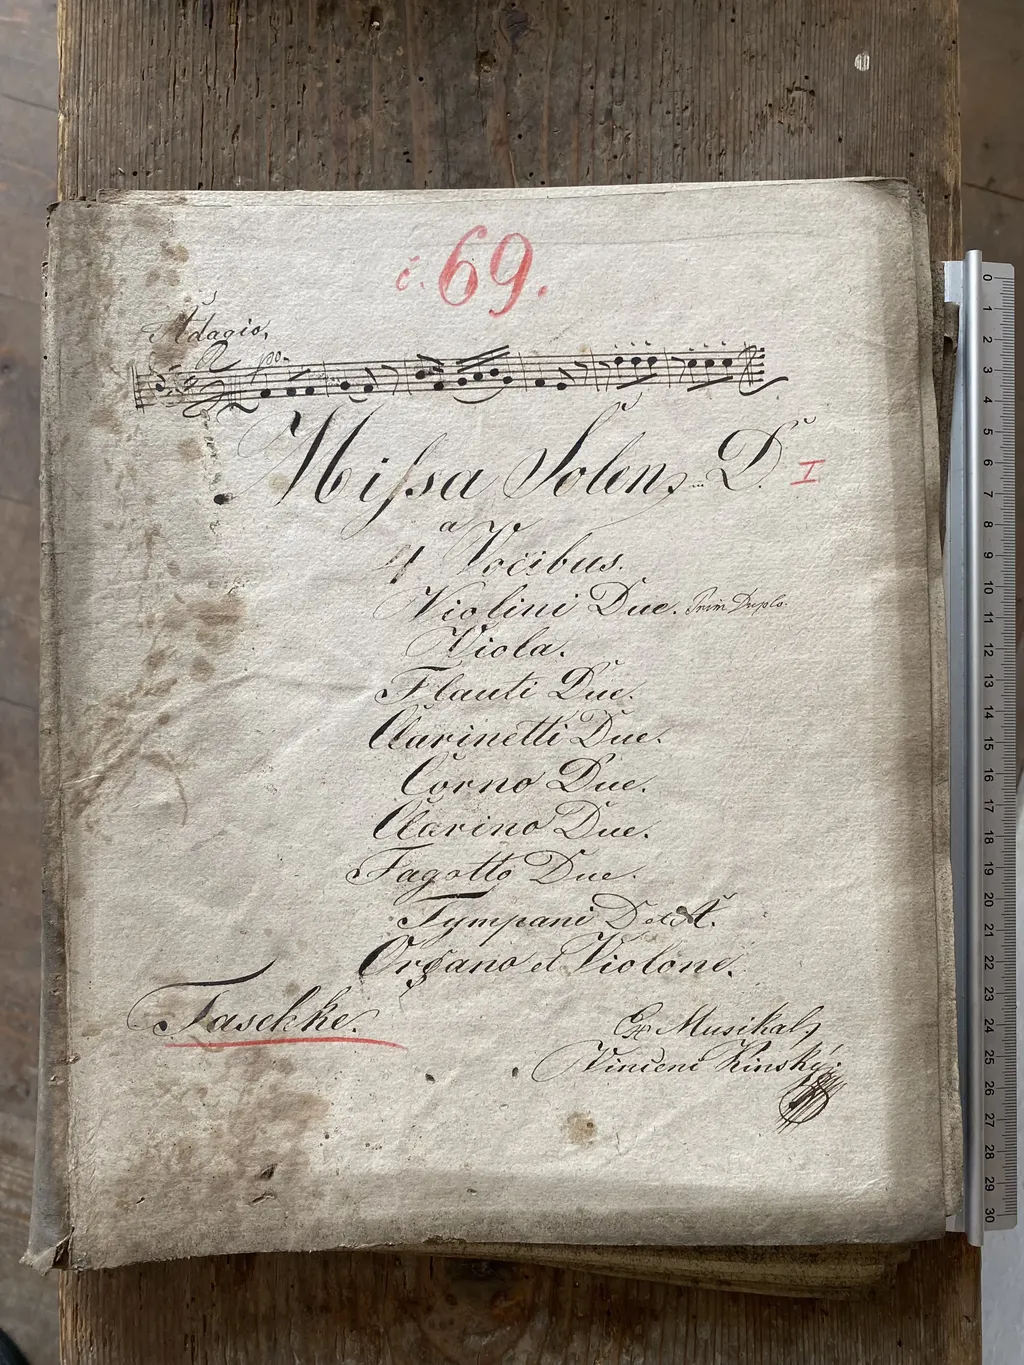 č. 69.
Adagio.
po
Missa Solen. D. I
a
4 Vocibus.
Violini Due. Prim Duplo.
Viola.
Flauti Due.
Clarinetti Due.
Corno Due.
Clarino Due.
Fagotto Due.
Tympani D et A.
Organo et Violone.
Taschke.
Ex Musikal.
Vincenc Kinský.
0 1 2 3 4 5 6 7 8 9 10 11 12 13 14 15 16 17 18 19 20 21 22 23 24 25 26 27 28 29 30